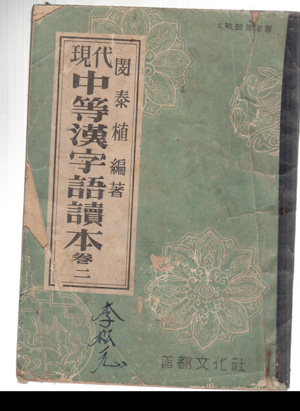 現代
中等漢字語讀本 卷二
閔泰植 編著
首都文化社